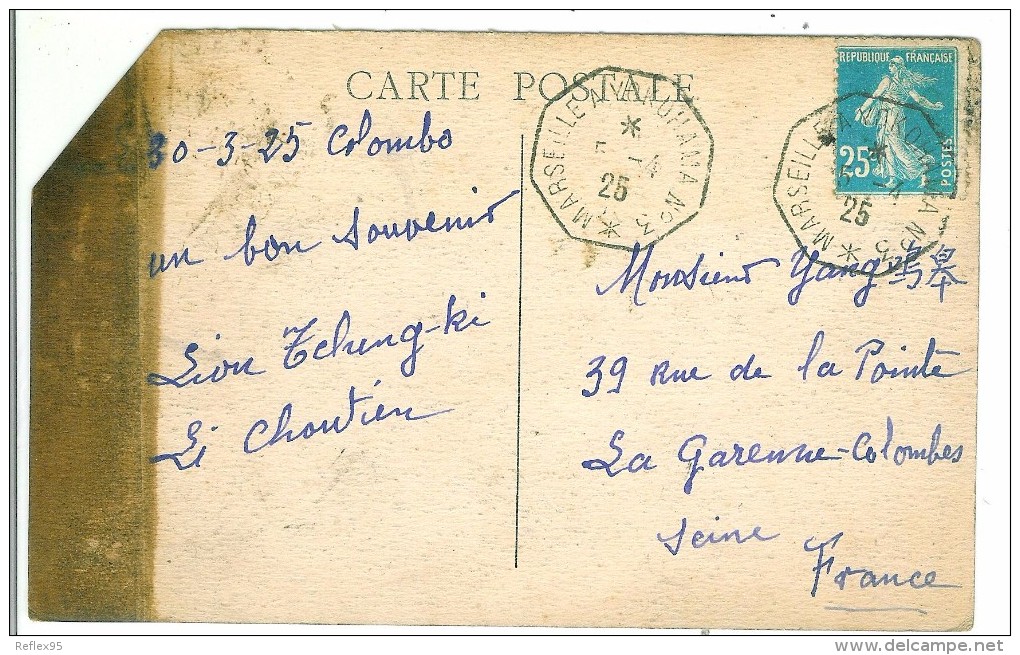 CARTE POSTALE
30-3-25 Colombo
un bon souvenir
Liou Tcheng-ki
Li Choutien
MARSEILLE A YOKOHAMA No 3
25
REPUBLIQUE FRANÇAISE
25c
POSTES
MARSEILLE A YOKOHAMA No 3
25
Monsieur Yang
39 Rue de la Pointe
La Garenne-Colombes
Seine
France
Reflex95
www.delcampe.net